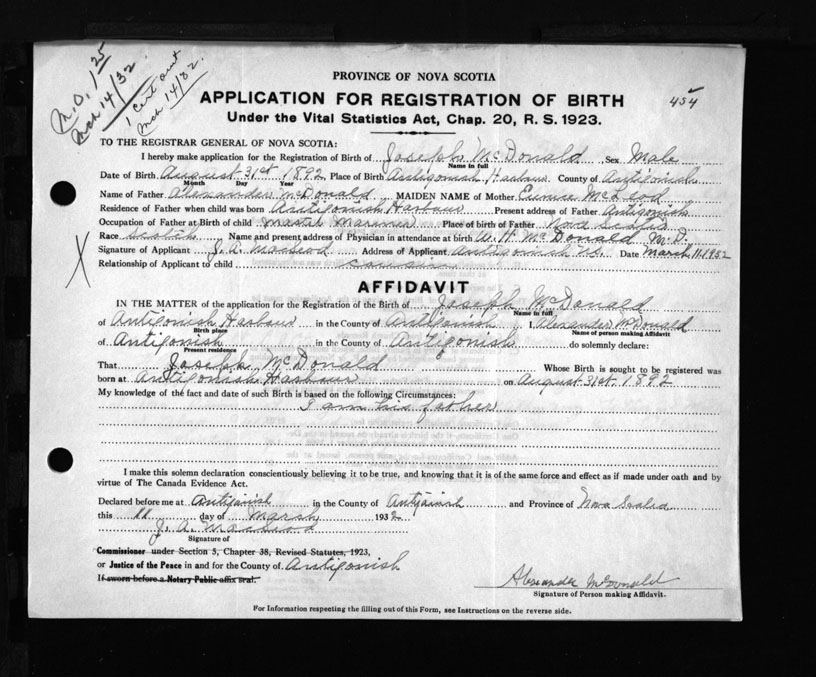 M.O. 1.25
Mch 14/32
1 cert out
Mch 14/32.
PROVINCE OF NOVA SCOTIA
454
APPLICATION FOR REGISTRATION OF BIRTH
Under the Vital Statistics Act, Chap. 20, R. S. 1923.
TO THE REGISTRAR GENERAL OF NOVA SCOTIA:
I hereby make application for the Registration of Birth of Joseph McDonald Sex Male
Name in full
Date of Birth August 31st 1892 Place of Birth Antigonish Harbour County of Antigonish
Month Day Year
Name of Father Alexander McDonald MAIDEN NAME of Mother Eunice McLeod
Residence of Father when child was born Antigonish Harbour Present address of Father Antigonish
Occupation of Father at Birth of child Master Mariner Place of birth of Father Nova Scotia
Race Scotch Name and present address of Physician in attendance at birth W. H. McDonald M.D.
Signature of Applicant J. A. MacLeod Address of Applicant Antigonish N.S. Date March 11 1932
Relationship of Applicant to child cousin
AFFIDAVIT
IN THE MATTER of the application for the Registration of the Birth of Joseph McDonald
Name in full
of Antigonish Harbour in the County of Antigonish I, Alexander McDonald
Birth place Name of person making Affidavit
of Antigonish in the County of Antigonish do solemnly declare:
Present residence
That Joseph McDonald Whose Birth is sought to be registered was
born at Antigonish Harbour on August 31st 1892
My knowledge of the fact and date of such Birth is based on the following Circumstances:
I am his father
I make this solemn declaration conscientiously believing it to be true, and knowing that it is of the same force and effect as if made under oath and by
virtue of The Canada Evidence Act.
Declared before me at Antigonish in the County of Antigonish and Province of Nova Scotia
this 11 day of March 1932
J. A. MacLeod
Signature of
Commissioner under Section 5, Chapter 38, Revised Statutes, 1923,
or Justice of the Peace in and for the County of Antigonish
If sworn before a Notary Public affix seal.
Alexander McDonald
Signature of Person making Affidavit.
For Information respecting the filling out of this Form, see Instructions on the reverse side.